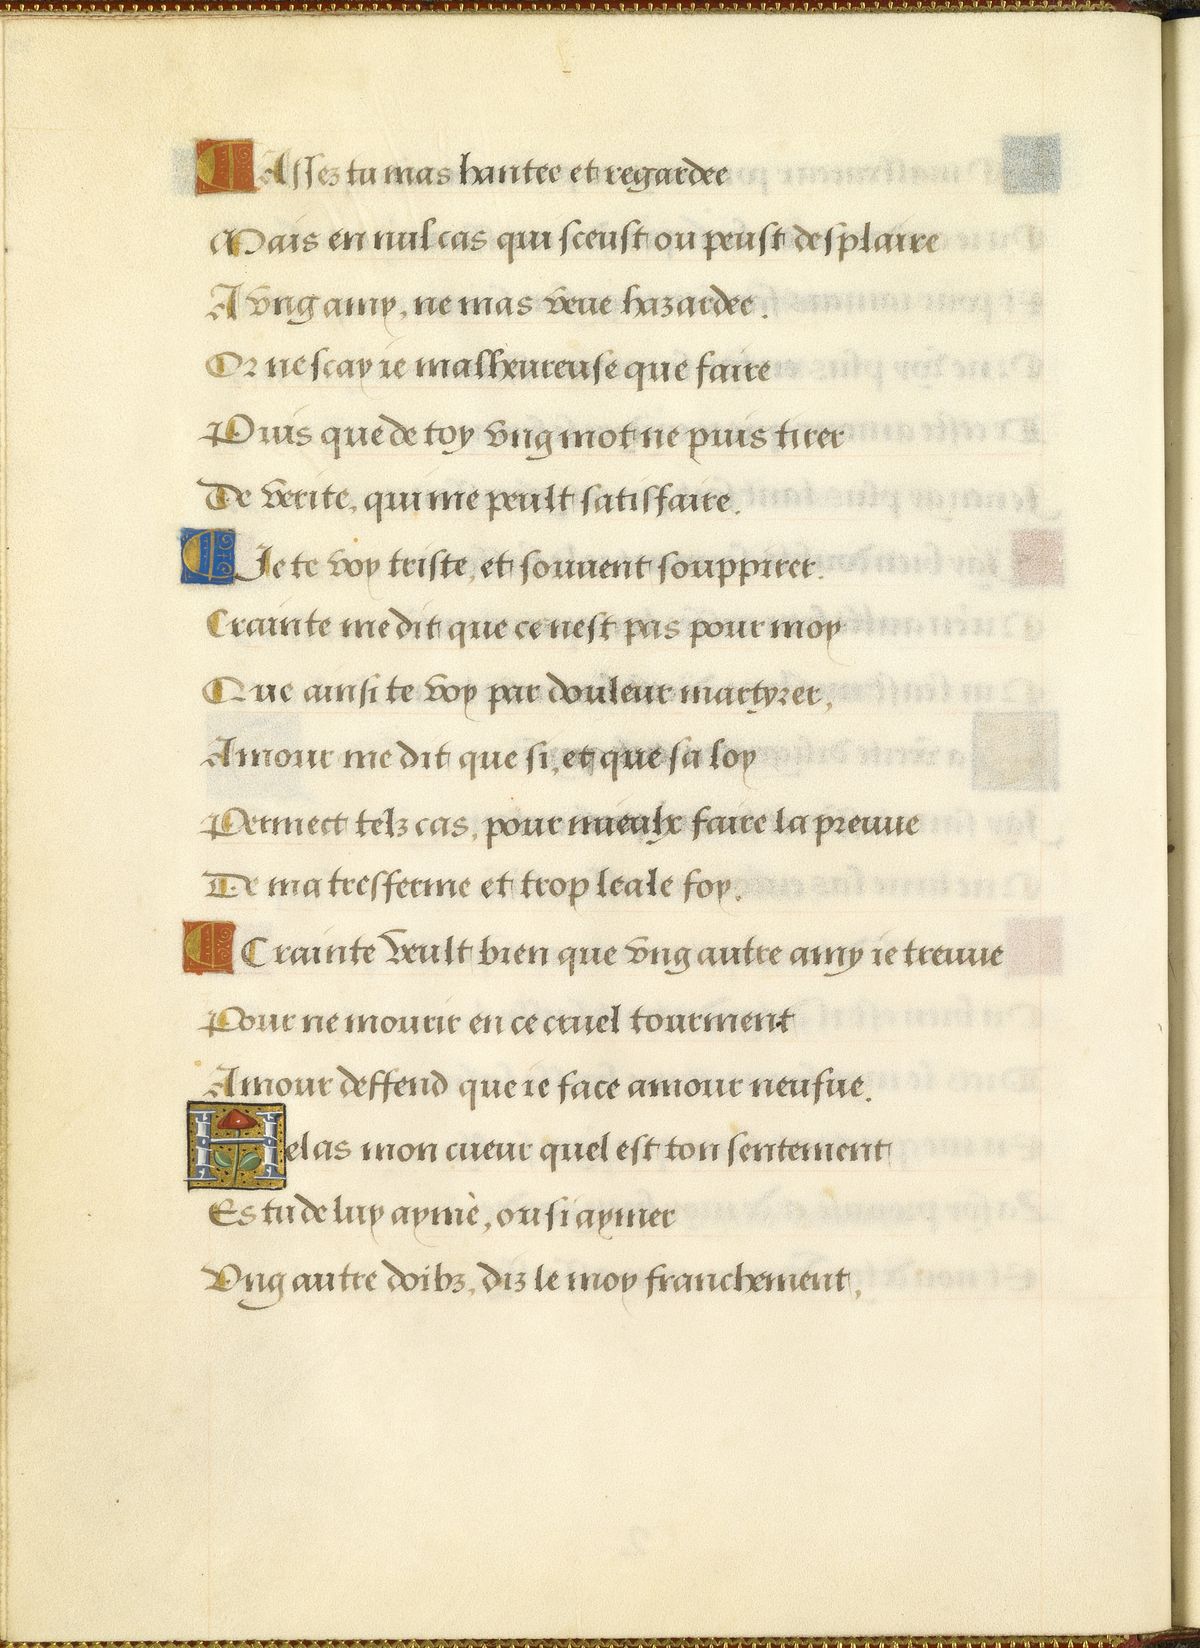 Assez tu mas hantee et regardee
Mais en nul cas qui sceust ou peust desplaire
A vng amy, ne mas veue hazardee.
Or ne scay ie malheureuse que faire
Puis que de toy vng mot ne puis tirer
De verite, qui me peult satisfaire.
Ie te voy triste, et souuent souppirer.
Crainte me dit que ce nest pas pour moy
Que ainsi te voy par douleur martyrer,
Amour me dit que si, et que sa loy
Permect telz cas, pour mieulx faire la preuue
De ma tresferme et trop leale foy.
Crainte veult bien que vng autre amy ie treuue
Pour ne mourir en ce cruel tourment
Amour deffend que ie face amour neufue.
Helas mon cueur quel est ton sentement
Es tu de luy aymè, ou si aymer
Vng autre doibz, diz le moy franchement,